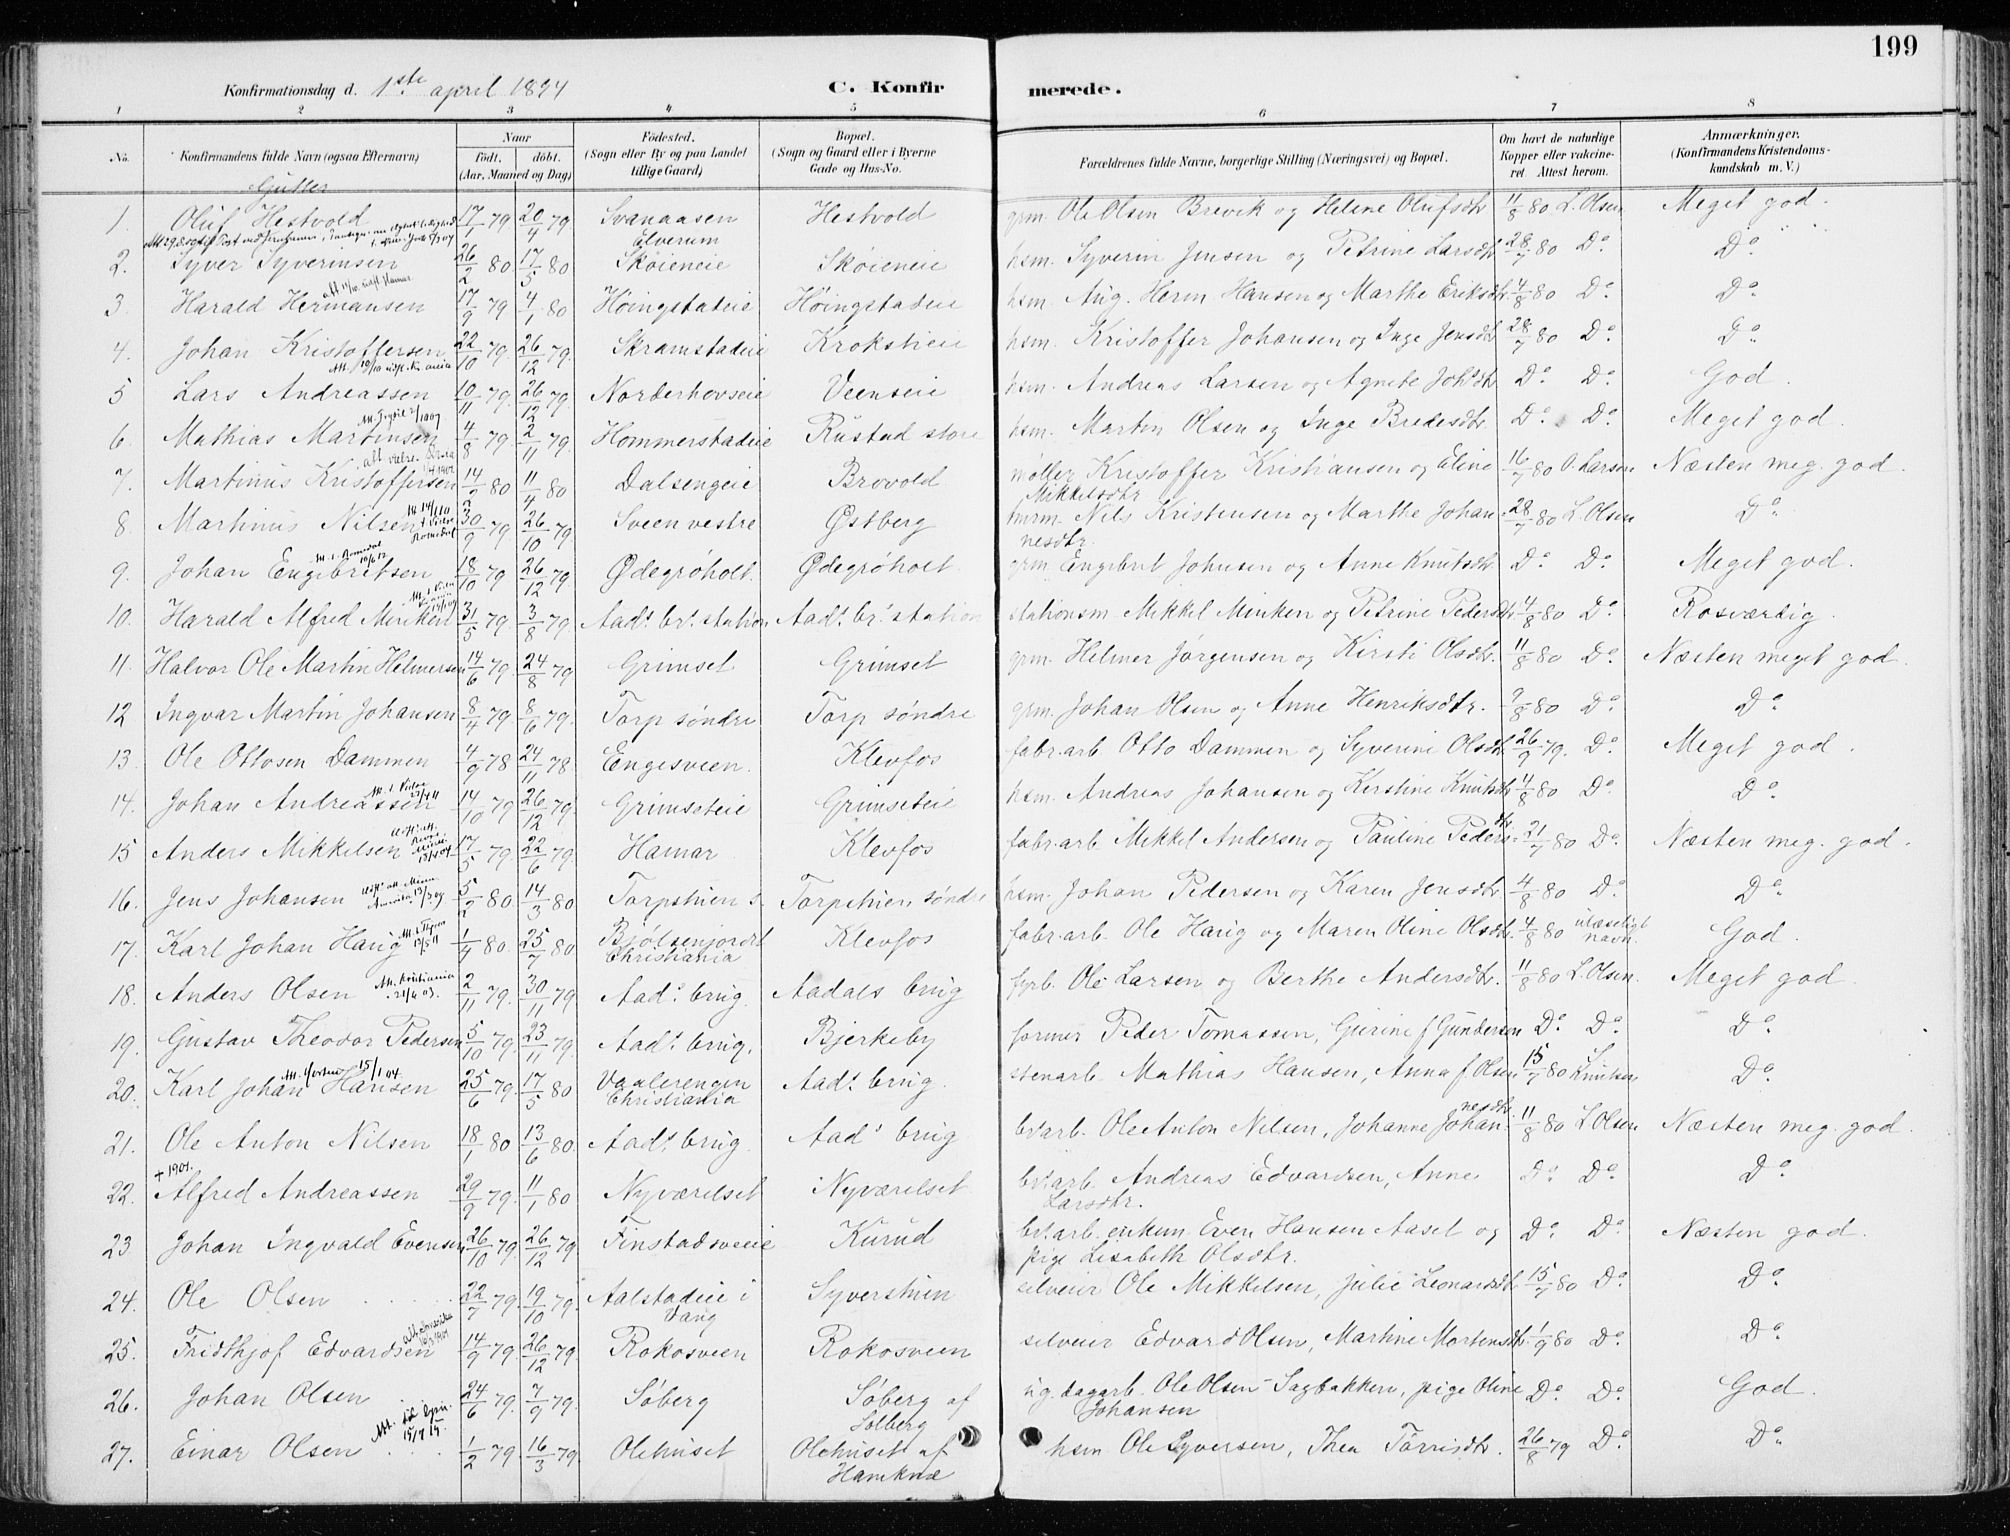 199
Konfirmationsdag d. 1ste april 1894
C. Konfirmerede.
1 2 3 4 5 6 7 8
No. Konfirmandens fulde Navn (ogsaa Efternavn) Naar født. døbt. (Aar, Maaned og Dag) Fødested. (Sogn eller By og paa Landet tillige Gaard) Bopæl. (Sogn og Gaard eller i Byerne Gade og Hus-No. Forældrenes fulde Navne, borgerlige Stilling (Næringsvei) og Bopæl. Om havt de naturlige Kopper eller vakcineret. Attest herom. Anmærkninger. (Konfirmandens Kristendomskundskab m. V.)
Gutter
1. Oluf Hestvold 17/1 79 20/4 79 Svanaasen Elverum Hestvold grm. Ole Olsen Brevik og Helene Olufsdtr 11/8 80 L. Olsen Meget god.
2. Syver Syverinsen 26/2 80 17/5 80 Skøieneie Skøieneie hsm. Syverin Jensen og Petrine Larsdtr 28/7 80 Do. Do.
3. Harald Hermansen 17/9 79 4/1 80 Høingstadeie Høingstadeie hsm. Aug. Herm. Hansen og Marthe Eriksdtr 4/8 80 Do. Do.
4. Johan Kristoffersen 22/10 79. 26/12 79. Skramstadeie Krokstieie hsm. Kristoffer Johansen og Inge Jensdtr 28/7 80 Do. Do.
5 Lars Andreassen 10/11 79. 26/12 79. Norderhovseie Veenseie hsm. Andreas Larsen og Agnete Johsdtr Do. Do. God.
6. Mathias Martinsen 4/8 79 2/11 79. Hommerstadeie Rustad store hsm. Martin Olsen og Inge Bredesdtr. Do. Do. Meget god.
7. Martinus Kristoffersen 14/2 80 11/4 80 Dalsengeie Brovold møller Kristoffer Kristiansen og Eline Mikkelsdtr 16/7 80 O. Larsen Næsten meg. god.
8. Martinus Nilsen 30/9 79. 26/10 79. Sveen vestre Østberg Nils Kristensen og Marthe Johannesdtr. 28/7 80 L. Olsen Do.
9. Johan Engebretsen 18/10 79 26/12 79. Ødegrøholt. Ødegrøholt. grm. Engebret Johnsen og Anne Knutsdtr. Do. Do. Meget god.
10. Harald Alfred Minken 31/5 79 3/8 79. Aads. br. station Aads. br. station stationsm. Mikkel Minken og Petrine Pedersdtr 4/8 80 Do Rosværdig.
11. Halvor Ole Martin Helmersen 14/6 79. 24/8 79 Grimset Grimset grm. Helmer Jørgensen og Kirsti Olsdtr. 11/8 80 Do. Næsten meget god.
12 Ingvar Martin Johansen 8/4 79. 8/6 79. Torp søndre Torp søndre grm. Johan Olsen og Anne Henriksdtr. 9/8 80 Do. Do.
13. Ole Ottosen Dammen 4/9 78 24/11 78. Engesveen. Klevfos fabr. arb. Otto Dammen og Syverine Olsdtr. 26/9 79. Do. Meget god.
14. Johan Andreassen 14/10 79. 26/12 79. Grimseteie Grimseteie hsm. Andreas Johansen og Kerstine Knutsdtr 4/8 80 Do. Do.
15 Anders Mikkelsen 17/5 79. 22/6 79. Hamar Klevfos fabr. arb. Mikkel Andersen og Pauline Pedersdtr 21/7 80 Do. Næsten meg. god.
16. Jens Johansen 5/2 80 14/3 80 Torpstuen s. Torpstuen søndre hsm. Johan Pedersen og Karen Jensdtr. 4/8 80 Do. Do.
17. Karl Johan Haug 1/4 80 25/7 80 Bjølsenjordet Christiania Klevfos fabr. arb. Ole Haug og Maren Oline Olsdtr. 4/8 80 ulæseligt navn. God.
18. Anders Olsen 2/11 79. 30/11 79. Aads. brug. Aadals brug fyrb. Ole Larsen og Berthe Andersdtr. 11/8 80 L. Olsen. Meget god.
19. Gustav Theodor Pedersen 5/10 79. 23/11 79. Aads. brug. Bjerkeby former Peder Tomassen, Gurine f. Gundersen Do. Do. Do.
20. Karl Johan Hansen 25/6 79. 17/5 80 Vaalerengen Christiania Aads. brug. stenarb. Mathias Hansen, Anna f. Olsen 15/7 80 L Knutsen Do.
21. Ole Anton Nilsen 18/1 80 13/6 80 Aads. brug. Aads brug br. arb. Ole Anton Nilsen, Johanne Johannesdtr. 11/8 80 L Olsen Næsten meg. god.
+ 1901.
22. Alfred Andreassen 29/9 79. 11/1 80 Nyværelset Nyværelset br. arb. Andreas Edvardsen, Anne Larsdtr. Do Do. Do.
23. Johan Ingvald Evensen 26/10 79. 26/12 79 Finstadsveeie Kurud br. arb. enkem. Even Hansen Aaset og pige Lisabeth Olsdtr. Do. Do. Næsten god.
24. Ole Olsen 22/7 79. 19/10 79. Aalstadeie i Vang Syverstuen selveier Ole Mikkelsen, Julie Leonardsdtr. 15/7 80 Do. Do.
25. Fridthjof Edvardsen 14/9 79. 26/12 79. Rokosveen Rokosveen selveier Edvard Olsen, Martine Mortensdtr. 1/9 80 Do. Do.
26. Johan Olsen 24/6 79. 7/9 79. Søberg Søberg af Solberg ug. dagarb. Ole Olsen Sagbakken, pige Oline Johansen Do. Do. God.
27. Einar Olsen 1/2 79. 16/3 79. Olehuset Olehuset af hsm. Ole Syversen, Thea Torrisdtr. 26/8 79 Do. Do.